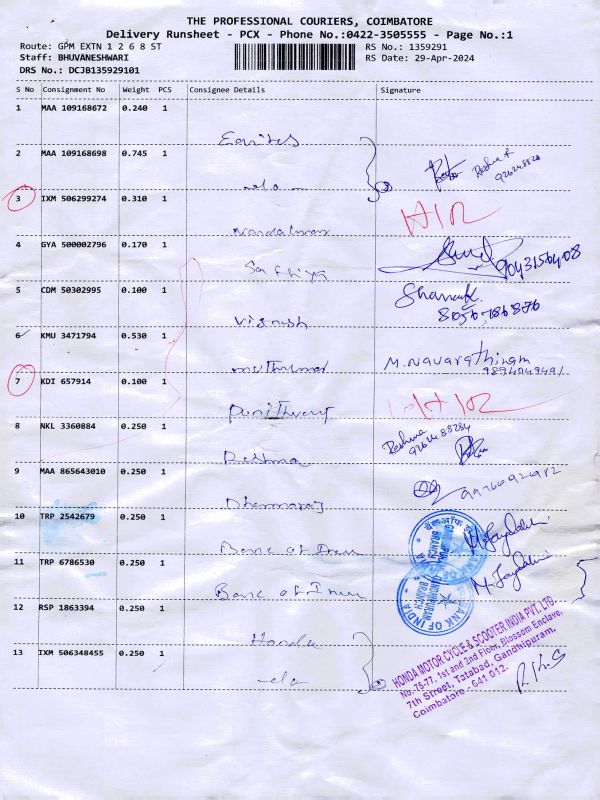 THE PROFESSIONAL COURIERS, COIMBATORE
Delivery Runsheet - PCX - Phone No.:0422-3505555 - Page No.:1
Route: GPM EXTN 1 2 6 8 ST
RS No.: 1359291
Staff: BHUVANESHWARI
RS Date: 29-Apr-2024
DRS No.: DCJB135929101
S No Consignment No Weight PCS Consignee Details Signature
1 MAA 109168672 0.240 1
2 MAA 109168698 0.745 1
3 IXM 506299274 0.310 1
4 GYA 500002796 0.170 1
Safhiya
9043156408
5 CDM 50302995 0.100 1
Vignesh
8056786876
6 KMU 3471794 0.530 1
M. Navarathinam
7 KDI 657914 0.100 1
8 NKL 3360884 0.250 1
Reshma
Reshma
9 MAA 865643010 0.250 1
Dhermaraj
10 TRP 2542679 0.250 1
Bank of
11 TRP 6786530 0.250 1
Bank of
BANK OF INDIA
GANDHIPURAM
BRANCH
12 RSP 1863394 0.250 1
Honda
13 IXM 506348455 0.250 1
HONDA MOTOR CYCLE & SCOOTER INDIA PVT. LTD.
No. 75-77, 1st and 2nd Floor, Blossom Enclave,
7th Street, Tatabad, Gandhipuram,
Coimbatore - 641 012.